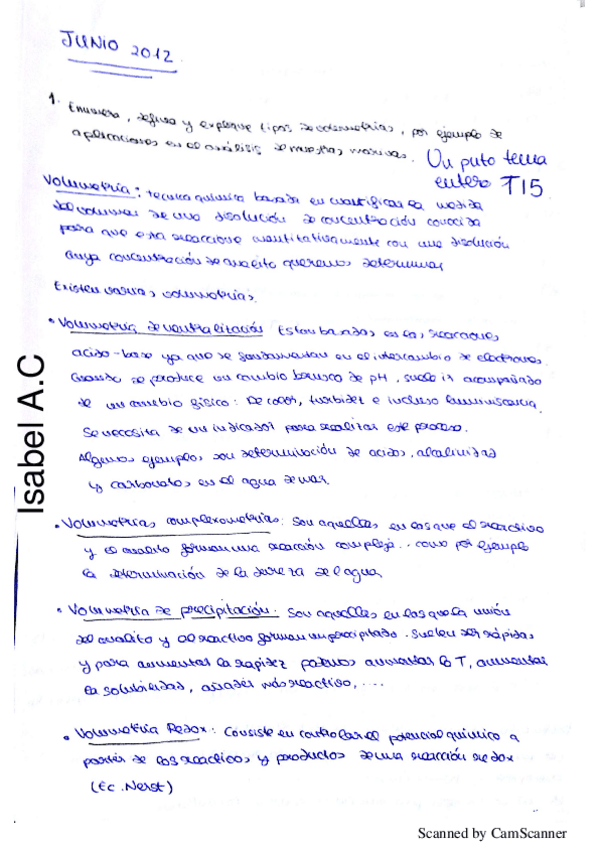 JUNIO 2012
1. Enumera, defina y explique tipos de volumetrías, por ejemplo de
aplicaciones en el análisis de muestras marinas. Un puto tema
entero T15
Volumetría: tecnica quimica basada en cuantificar la medida
del volumen de una disolución de concentración conocida
para que esta reaccione cuantitativamente con una disolución
cuya concentración de analito queremos determinar
Existen varias volumetrías.
• Volumetría de neutralización Estan basadas en las reacciones
acido-base ya que se fundamentan en el intercambio de electrones.
Cuando se produce un cambio brusco de pH, suele ir acompañado
de un cambio fisico: De color, turbidez e incluso luminiscencia.
Se necesita de un indicador para realizar este proceso.
Algunos ejemplos son determinación de acidos, alcalinidad
y carbonatos en el agua de mar.
• Volumetrias complexometrias: Son aquellas en las que el reactivo
y el analito forman una reacción compleja.. como por ejemplo
la determinación de la dureza del agua
• Volumetría de precipitación: Son aquellas en las que la unión
del analito y el reactivo forman un precipitado. Suelen ser rápidas
y para aumentar la rapidez podemos aumentar la T, aumentar
la solubilidad, añadir más reactivo, ...
• Volumetria Redox: Consiste en controlar el potencial quimico a
partir de los reactivos y productos de una reacción redox
(Ec. Nerst)
Isabel A.C
Scanned by CamScanner